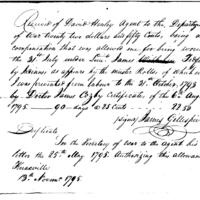 Received of David Henley Agent to the Department
of war twenty two dollars and fifty Cents, being a
compensation that was allowed me for being wound
the 31st July under Lieut James
by Indians as appears by the muster Rolles of which
I was prevented from labour to the 31st October, 1795
by Doctor James Cozby Certificate, of the 6th Aug
1795 — 90 days @ 25 Cents — 22.50
(signed) James Gillespie
Duplicate
In the Secretary of war to the Agent his
letter the 25th May 1795. Authorizing this allowance
Knoxville
13th Novemr 1795